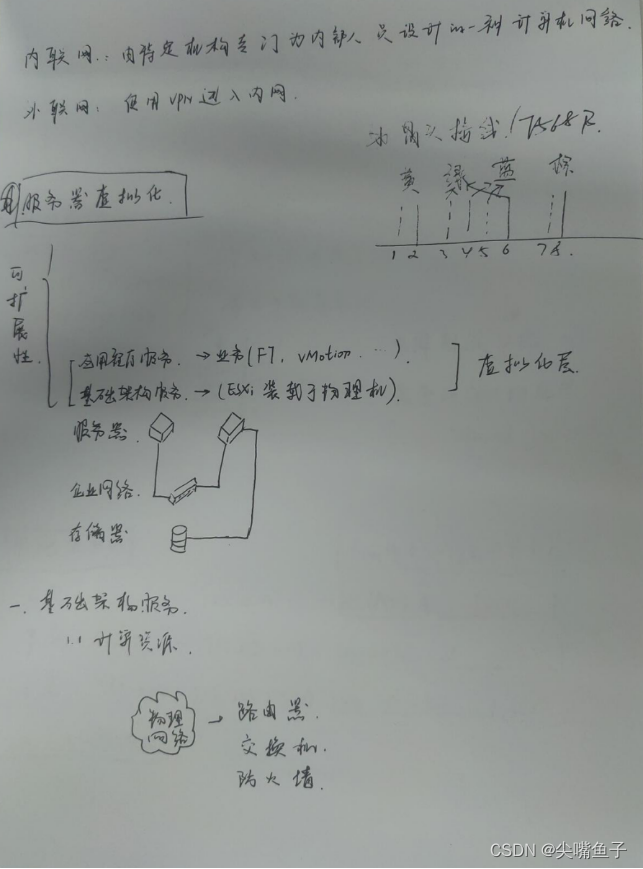 内联网：由特定机构专门为内部人员设计的一种计算机网络.
外联网：使用VPN进入内网.
水晶头接线/T568B.
黄 绿 蓝 棕
1 2 3 4 5 6 7 8.
服务器虚拟化.
可扩展性.
应用程序服务. → 业务(FT, vMotion ...).
基础架构服务. → (ESXi装载于物理机).
虚拟化层.
服务器.
企业网络.
存储器
一. 基础架构服务.
1.1 计算资源.
物理网络 → 路由器.
交换机.
防火墙.
CSDN @尖嘴鱼子